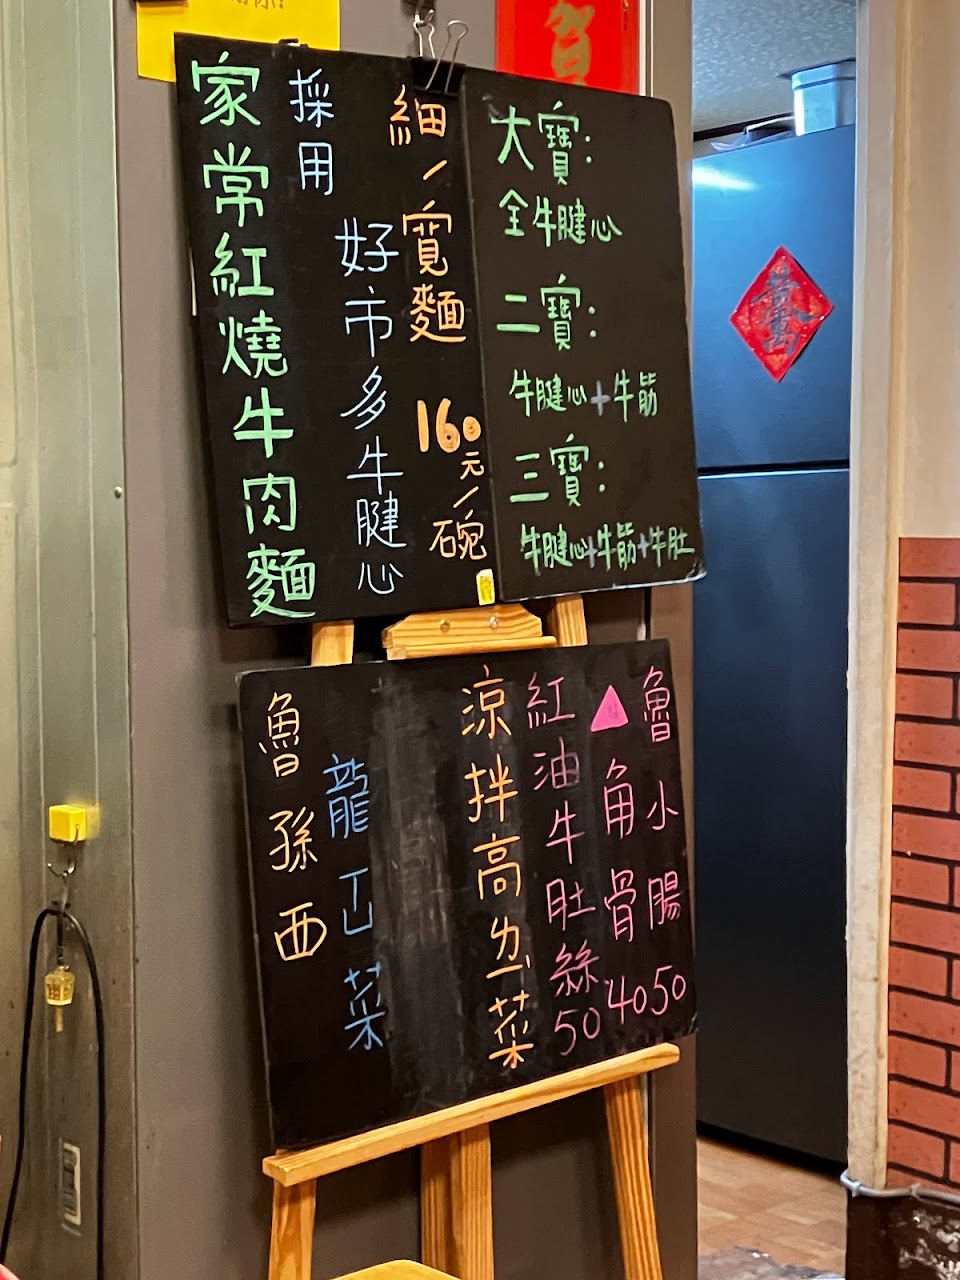 家常紅燒牛肉麵
採用
好市多牛腱心
細/寬麵
160元/碗
大寶:
全牛腱心
二寶:
牛腱心+牛筋
三寶:
牛腱心+牛筋+牛肚
魯小腸50
▲角骨40
紅油牛肚絲50
涼拌高ㄌㄧ菜
龍ㄒㄩ菜
魯孫西
賀